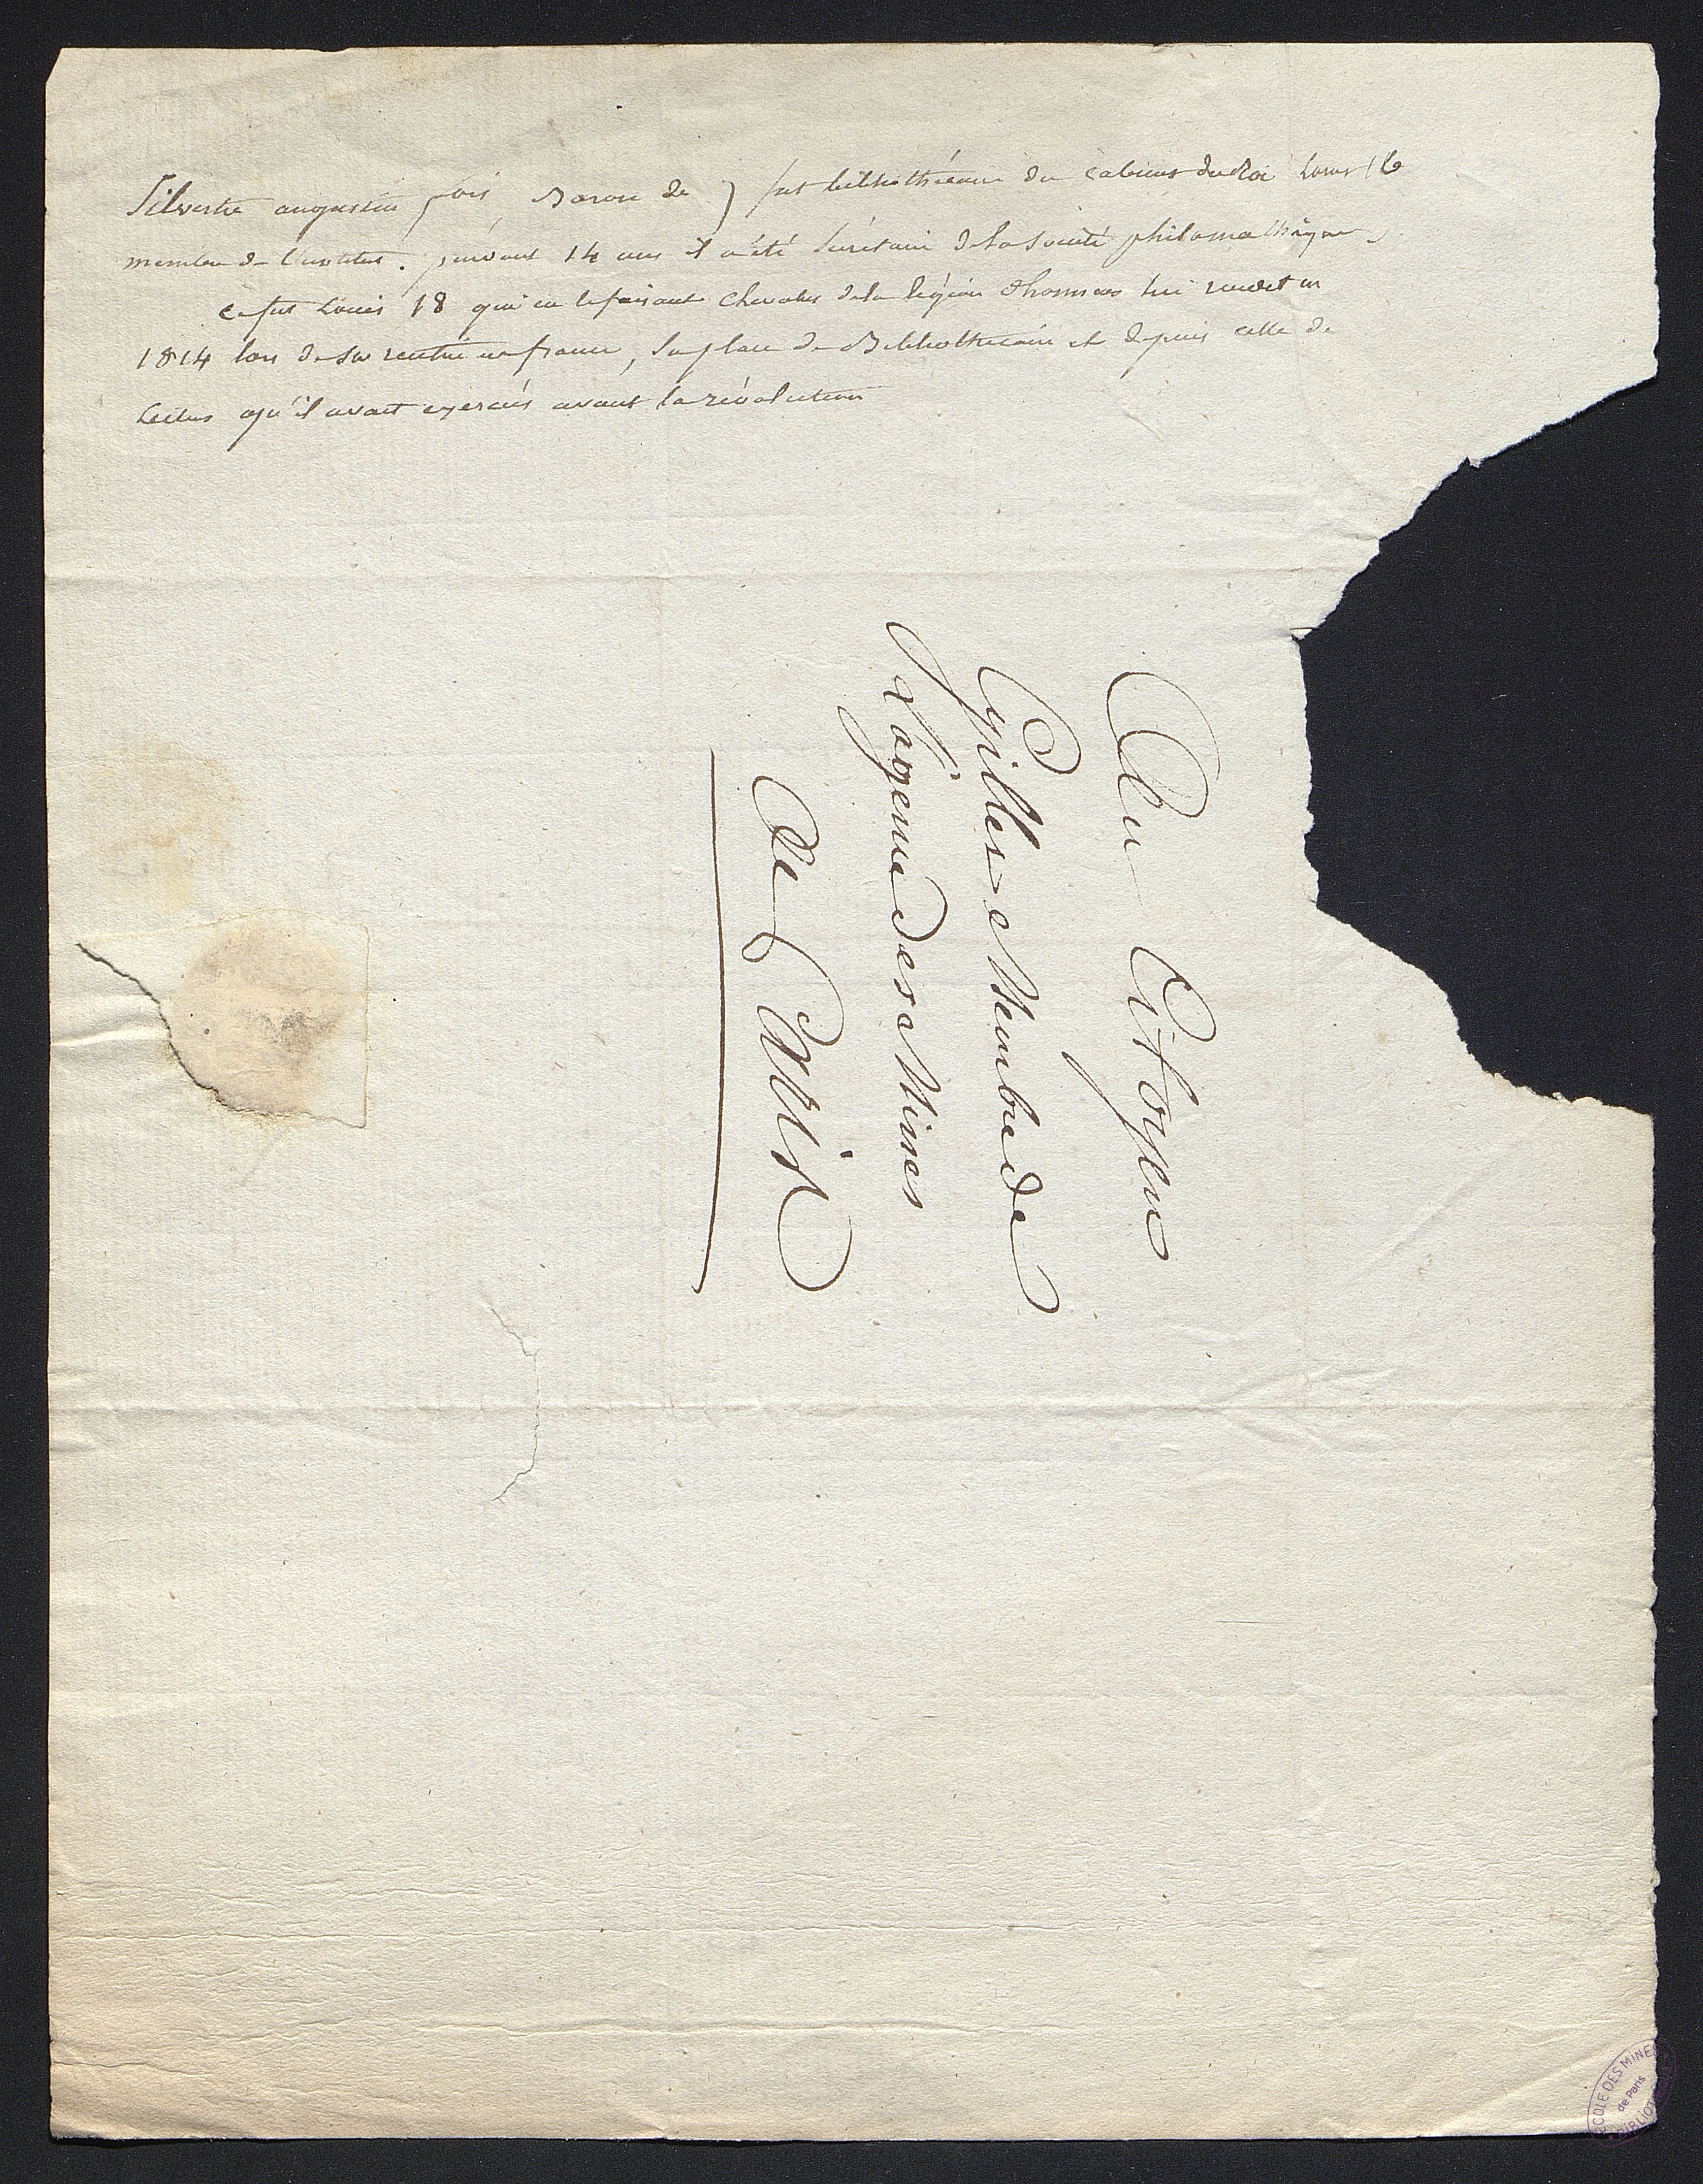 Silvestre augustin fois, Baron de ) fut bibliothécaire du cabinet du Roi Louis 16
membre de l'institut. pendant 14 ans il a été secrétaire de la société philomathique,
ce fut Louis 18 qui en le faisant chevalier de la légion d'honneur lui rendit en
1814 lors de sa rentrée en france, la place de Bibliothécaire et depuis celle de
Lecteur qu'il avait exercés avant la révolution
Au Citoyen
Gillet Membre de
L'agence des Mines
A Paris
ECOLE DES MINES
de Paris